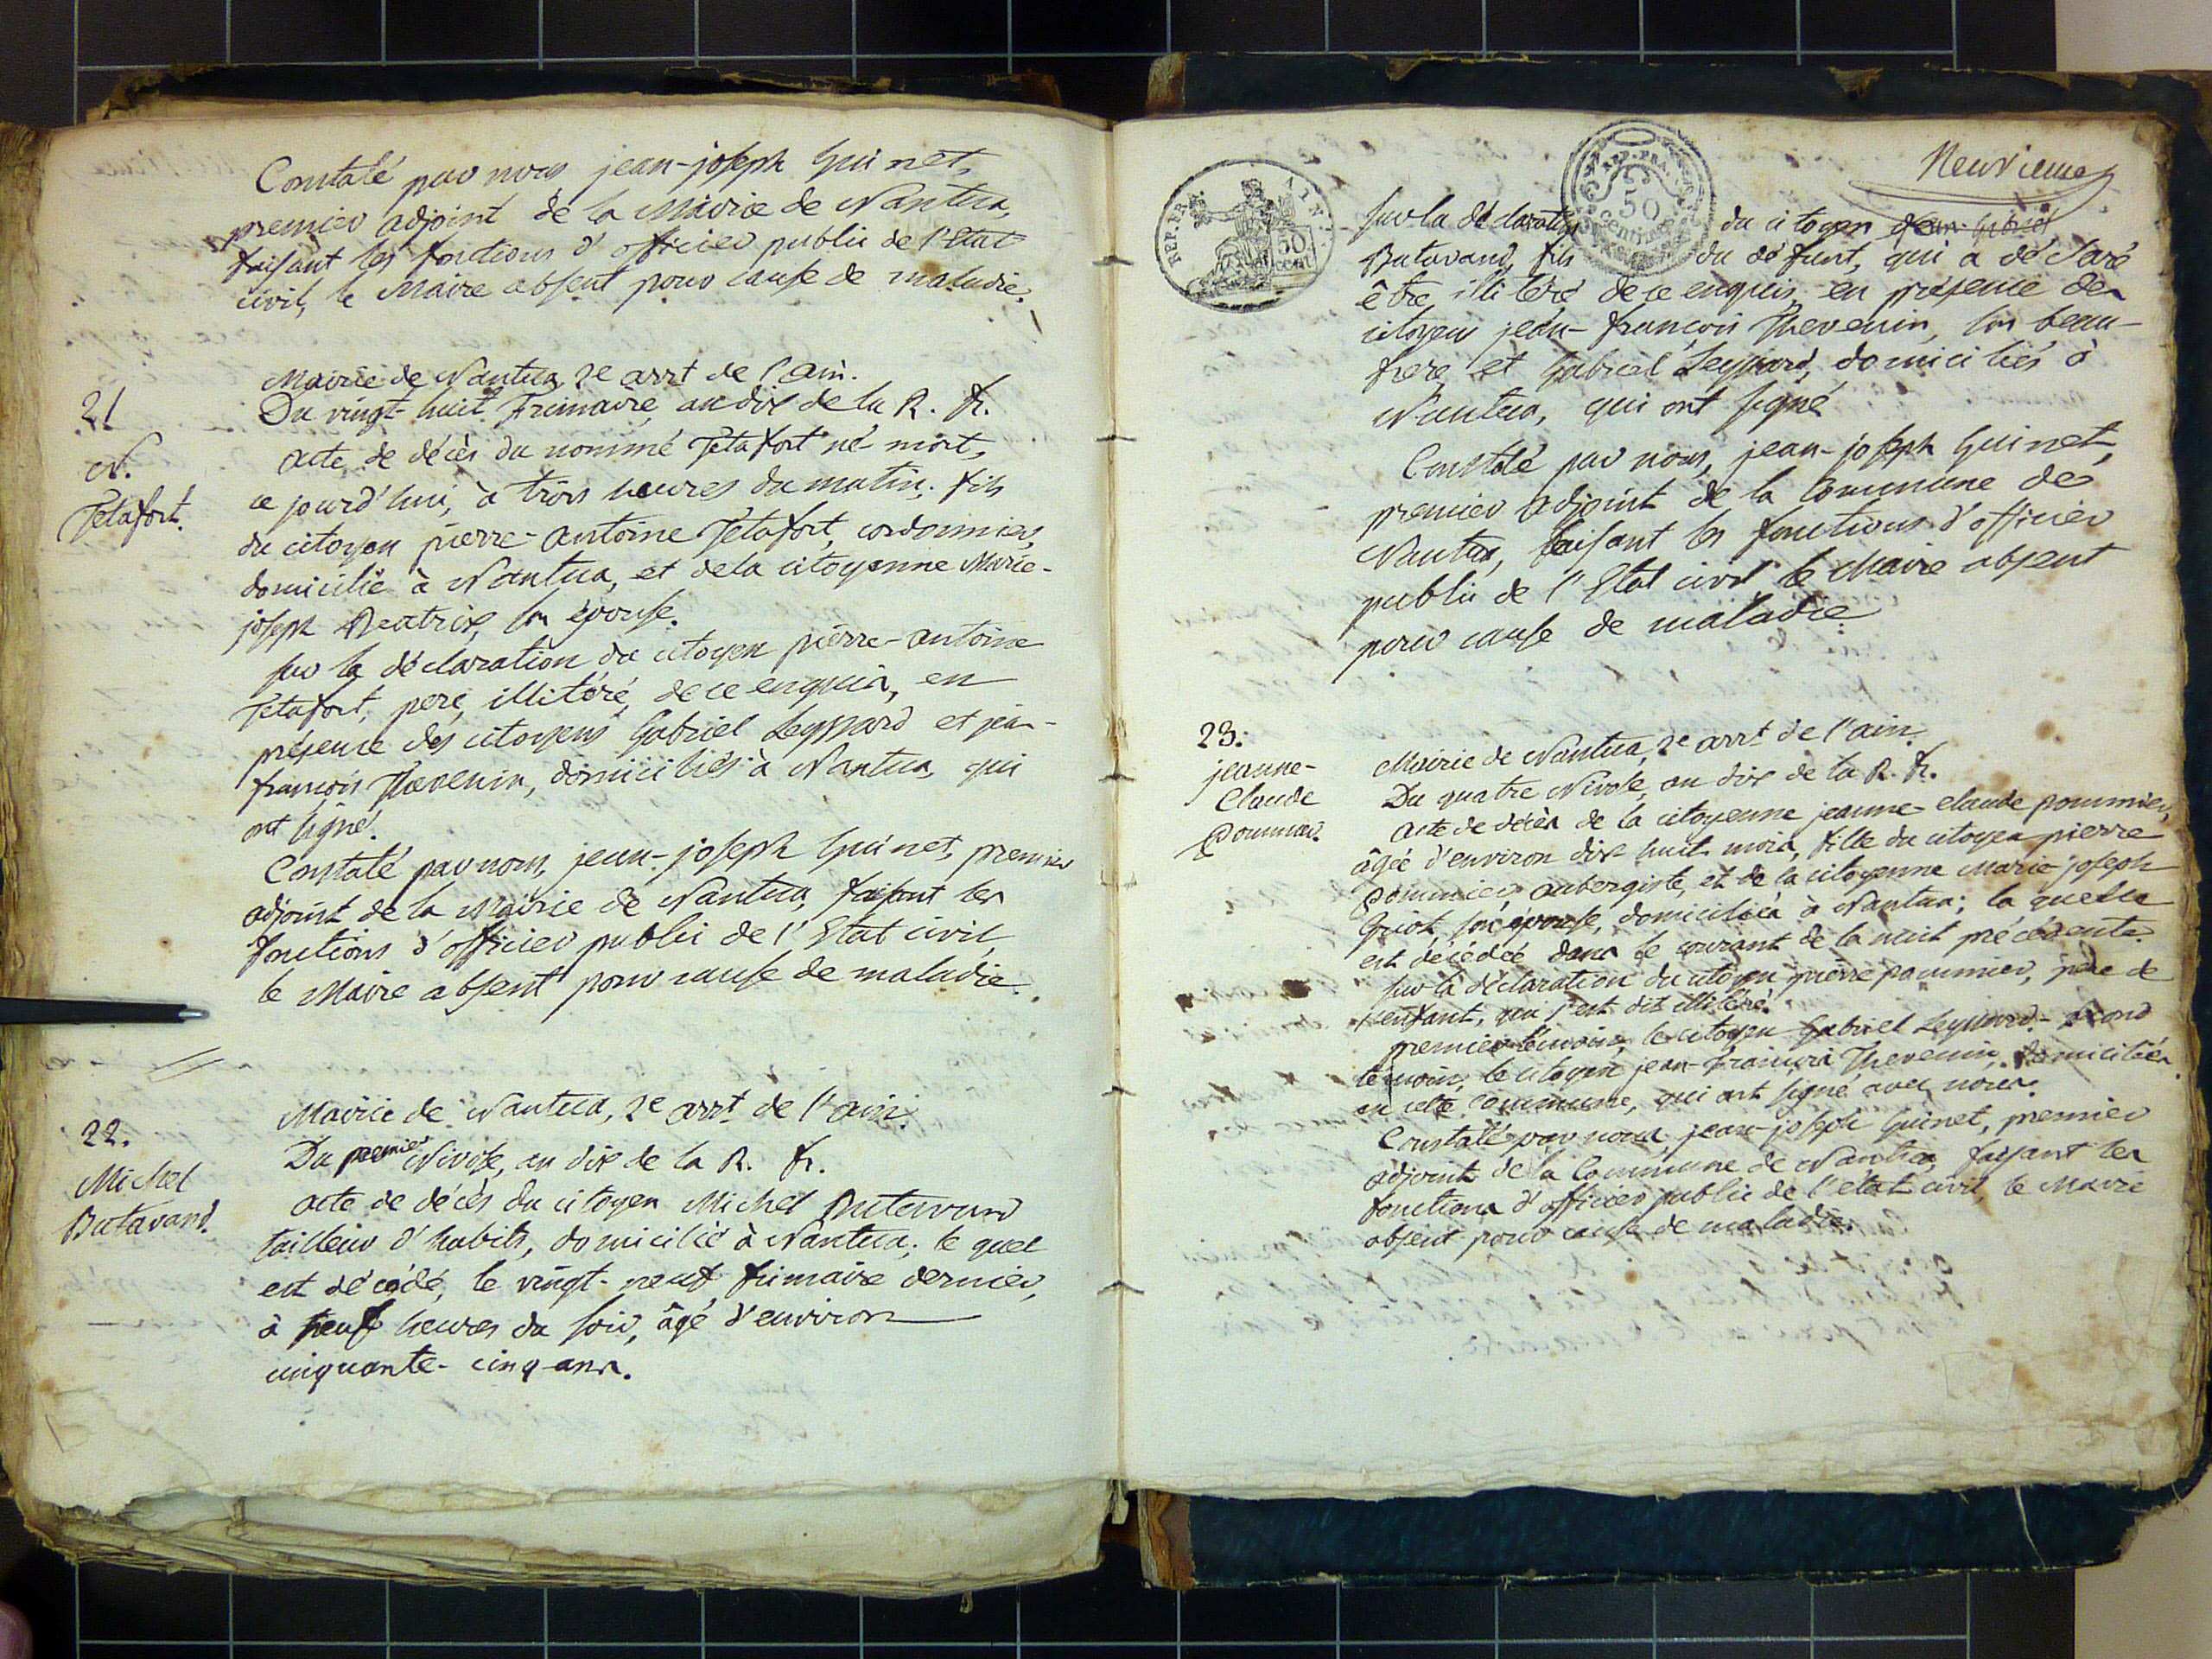 Constaté par nous jean-joseph Guinet,
premier adjoint de la Mairie de Nantua,
faisant les fonctions d'officier public de l'Etat
civil, le Maire absent pour cause de maladie.
21
N.
Tetafort.
Mairie de Nantua, 2e arrt de l'ain.
Du vingt-huit Frimaire, an dix de la R. fr.
acte de décès du nommé Tetafort né-mort,
ce jourd'hui, à trois heures du matin; fils
du citoyen pierre-antoine Tetafort, cordonnier,
domicilié à Nantua, et de la citoyenne Marie-
joseph Beatrix, son épouse.
sur la déclaration du citoyen pierre-antoine
Tetafort, pere, illitéré, de ce enquis, en
présence des citoyens Gabriel Leyssard et jean-
françois Thevenin, domiciliés à Nantua, qui
ont signé.
Constaté par nous, jean-joseph Guinet, premier
adjoint de la Mairie de Nantua, faisant les
fonctions d'officier public de l'Etat civil,
le Maire absent pour cause de maladie.
22.
Michel
Butavand.
Mairie de Nantua, 2e arrt de l'ain.
Du premier Nivose, an dix de la R. fr.
acte de décès du citoyen Michel Butavand
tailleur d'habits, domicilié à Nantua; le quel
est décédé, le vingt-neuf frimaire dernier,
à neuf heures du soir, âgé d'environ
cinquante-cinq ans.
Neuvieme
REP. FRA. AIN
50 cent
REP. FRA.
50 Centimes
sur la déclaration du citoyen jean-Gabriel
Butavand, fils du défunt, qui a déclaré
être illitéré de ce enquis, en présence des
citoyens jean-françois Thevenin, son beau-
frere, et Gabriel Leyssard, domiciliés à
Nantua, qui ont signé
Constaté par nous, jean-joseph Guinet,
premier adjoint de la Commune de
Nantua, faisant les fonctions d'officier
public de l'Etat civil, le Maire absent
pour cause de maladie.
23.
jeanne-
Claude
Pommier.
Mairie de Nantua, 2e arrt de l'ain.
Du quatre Nivose, an dix de la R. fr.
acte de décès de la citoyenne jeanne-claude pommier,
âgée d'environ dix huit mois, fille du citoyen pierre
Pommier aubergiste, et de la citoyenne Marie-joseph
son épouse, domiciliés à Nantua; la quelle
est décédée dans le courant de la nuit précédente.
sur la déclaration du citoyen pierre pommier, pere de
l'enfant, qui s'est dit illitéré.
premier témoin, le citoyen Gabriel Leyssard - second
témoin, le citoyen jean-françois Thevenin, domiciliés
en cette commune, qui ont signé avec nous.
Constaté par nous jean-joseph Guinet, premier
adjoint de la Commune de Nantua, faisant les
fonctions d'officier public de l'état civil, le Maire
absent pour cause de maladie.